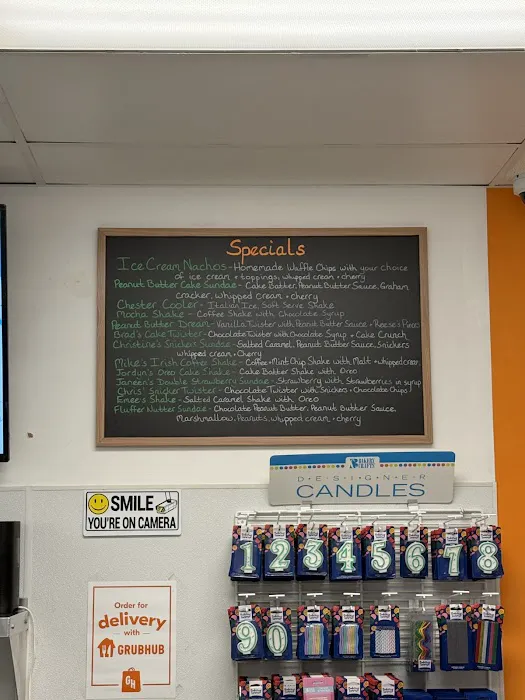 Specials
Ice Cream Nachos - Homemade Waffle Chips with your choice
of ice cream + toppings, whipped cream + cherry
Peanut Butter Cake Sundae - Cake Batter, Peanut Butter Sauce, Graham
cracker, whipped cream + cherry
Chester Cooler - Italian Ice, Soft Serve Shake
Mocha Shake - Coffee Shake with Chocolate Syrup
Peanut Butter Dream - Vanilla Twister with Peanut Butter Sauce + Reese's Pieces
Brad's Cake Twister - Chocolate Twister with Chocolate Syrup + Cake Crunch
Christine's Snicker Sundae - Salted Caramel, Peanut Butter Sauce, Snickers
whipped cream + Cherry
Mike's Irish Coffee Shake - Coffee + Mint Chip Shake with Malt + whipped cream
Jordyn's Oreo Cake Shake - Cake Batter Shake with Oreo
Janeen's Double Strawberry Sundae - Strawberry with Strawberries in syrup
Chris' Snicker Twister - Chocolate Twister with Snickers + Chocolate Chips
Emee's Shake - Salted Caramel Shake with Oreo
Fluffer Nutter Sundae - Chocolate Peanut Butter, Peanut Butter Sauce,
Marshmallow, Peanuts, whipped cream + cherry
DESIGNER
CANDLES
SMILE
YOU'RE ON CAMERA
1 2 3 4 5 6 7 8
9 0
Order for
delivery
with
GRUBHUB
GH